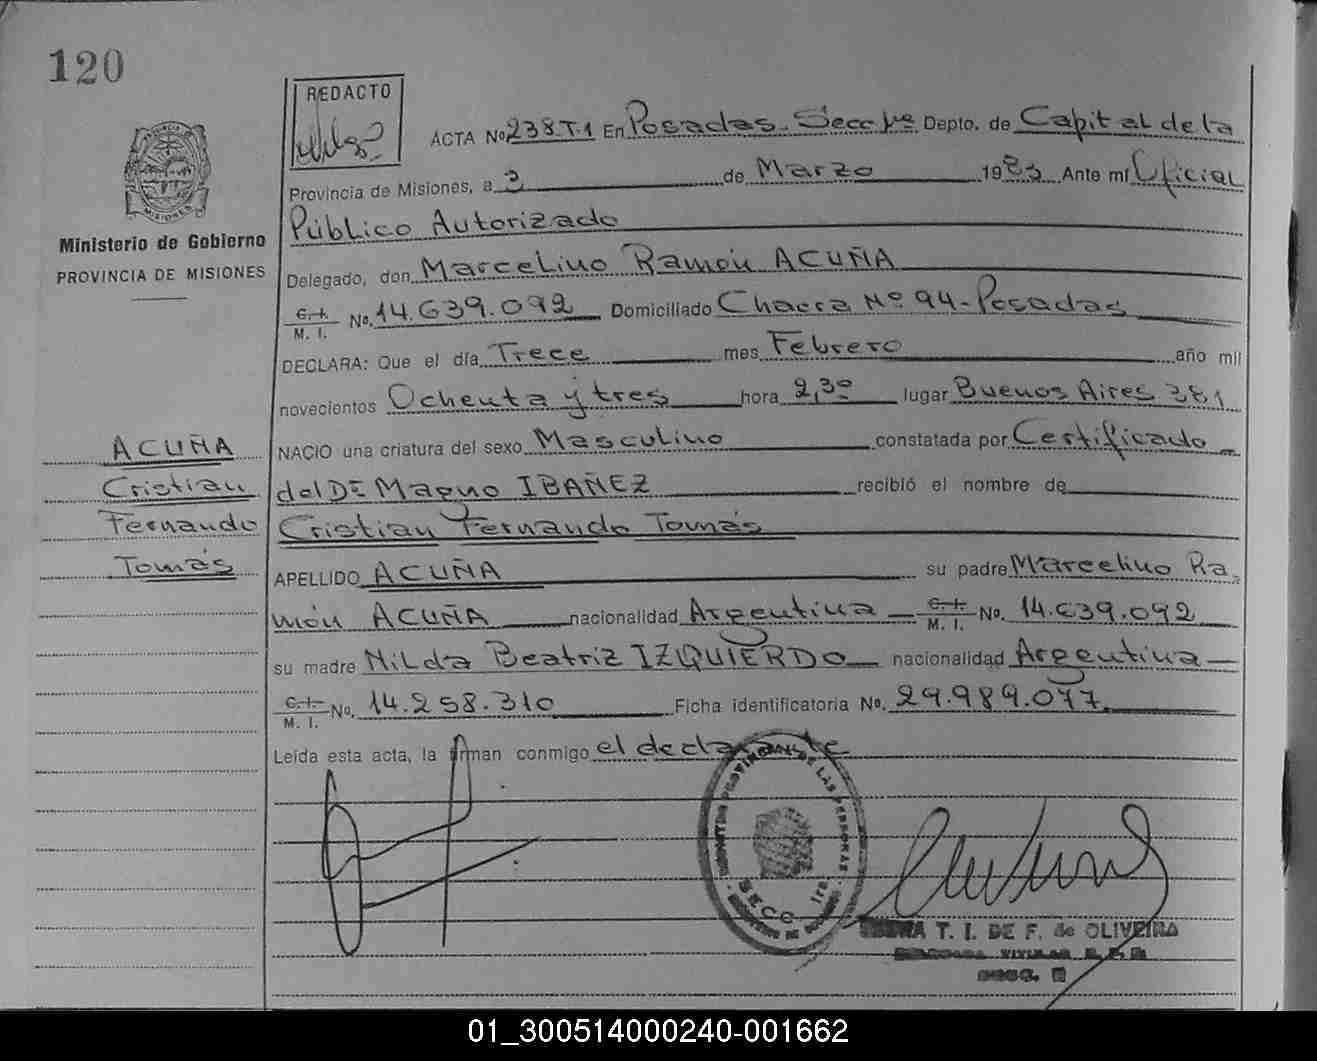 120
REDACTO
ACTA No 238.T.1 En Posadas. Secc 1ra Depto. de Capital de la
Provincia de Misiones, a 3 de Marzo 1983 Ante mí Oficial
Público Autorizado
Ministerio de Gobierno
PROVINCIA DE MISIONES
MISIONES
Delegado, don Marcelino Ramón ACUÑA
C. I.
M. I. No. 14.639.092 Domiciliado Chacra Nº 94-Posadas
DECLARA: Que el día Trece mes Febrero año mil
novecientos Ochenta y tres hora 2,30 lugar Buenos Aires 381
NACIO una criatura del sexo Masculino constatada por Certificado
del Dr Magno IBAÑEZ recibió el nombre de
Cristian Fernando Tomás
ACUÑA
Cristian
Fernando
Tomás
APELLIDO ACUÑA su padre Marcelino Ra-
món ACUÑA nacionalidad Argentina C. I. M. I. No. 14.639.092
su madre Nilda Beatriz IZQUIERDO nacionalidad Argentina
C. I. M. I. No. 14.258.310 Ficha identificatoria No. 29.989.077
Leída esta acta, la firman conmigo el declarante
PROVINCIAL DE LAS PERSONAS
SECC. 1ra
T. I. DE F. de OLIVEIRA
01_300514000240-001662